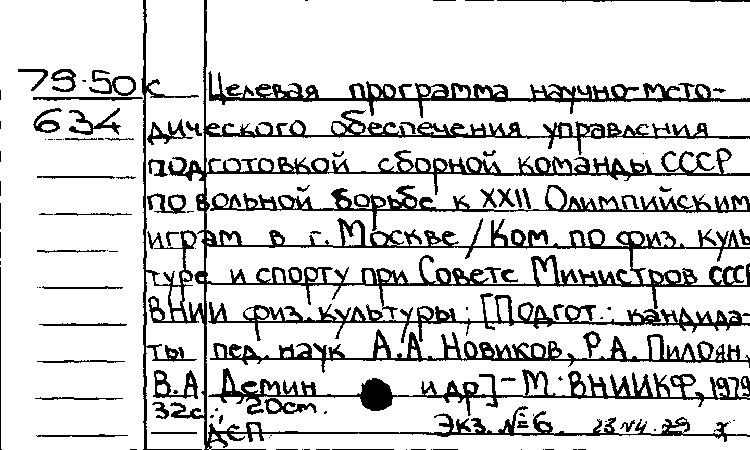 79-50к Целевая программа научно-мето-
634 дического обеспечения управления
подготовкой сборной команды СССР
по вольной борьбе к XXII Олимпийским
играм в г. Москве / Ком. по физ. куль
туре и спорту при Совете Министров СССР
ВНИИ физ. культуры; [Подгот.: кандида-
ты пед. наук А.А. Новиков, Р.А. Пилоян,
В.А. Демин и др.] - М.: ВНИИКФ, 1979
32с.; 20см.
ДСП Экз. №6.